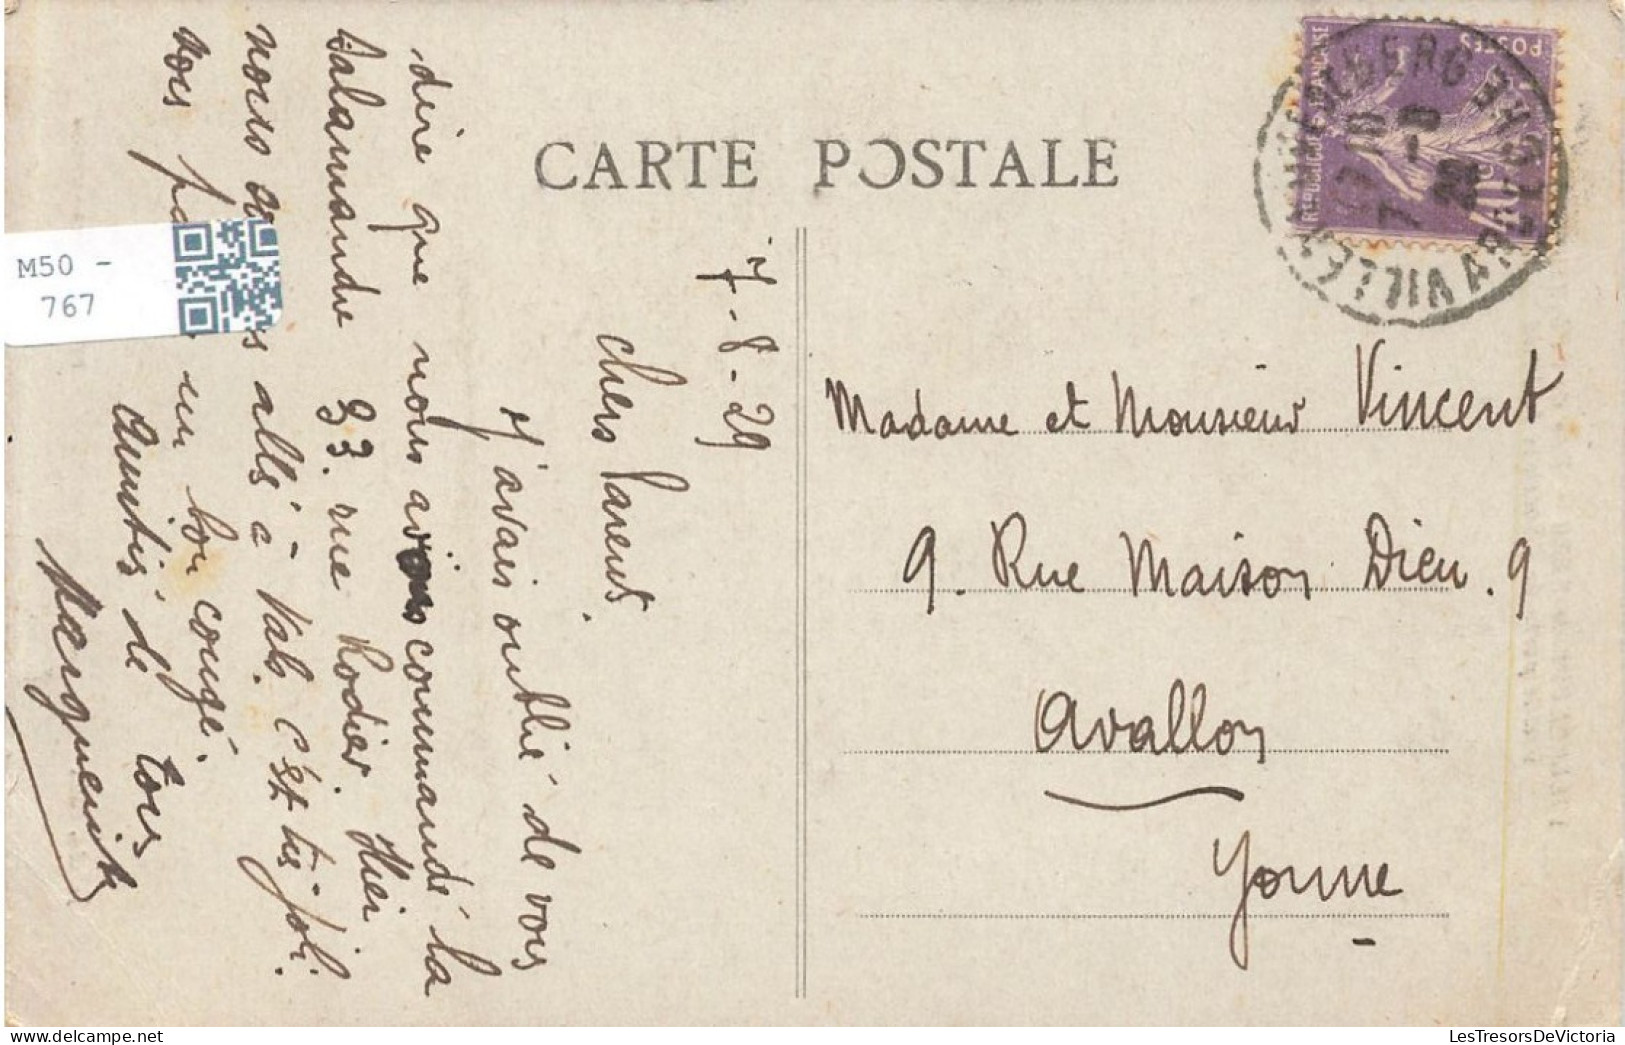 CARTE POSTALE
7-8-29
Chers Parents.
J'avais oublié de vous
dire que nous avions commandé la
Salamandre 33. rue Rodier. Hier
nous allé à Vals. C'est très joli.
vous un bon congé.
Amitiés de tous
Marguerite
Madame et Monsieur Vincent
9. Rue Maison Dieu. 9
Avallon
Yonne
REPUBLIQUE FRANÇAISE
POSTES
VILLENEUVE DE BERG
ARDECHE
7 - 8
M50 -
767
LesTresorsDeVictoria